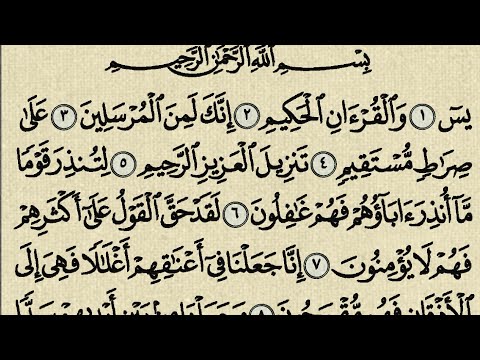 بِسْمِ اللَّهِ الرَّحْمَٰنِ الرَّحِيمِ
يسٓ ١ وَالْقُرْءَانِ الْحَكِيمِ ٢ إِنَّكَ لَمِنَ الْمُرْسَلِينَ ٣ عَلَىٰ
صِرَاطٍ مُّسْتَقِيمٍ ٤ تَنزِيلَ الْعَزِيزِ الرَّحِيمِ ٥ لِتُنذِرَ قَوْمًا
مَّا أُنذِرَ ءَابَآؤُهُمْ فَهُمْ غَافِلُونَ ٦ لَقَدْ حَقَّ الْقَوْلُ عَلَىٰ أَكْثَرِهِمْ
فَهُمْ لَا يُؤْمِنُونَ ٧ إِنَّا جَعَلْنَا فِىٓ أَعْنَاقِهِمْ أَغْلَالًا فَهِىَ إِلَى
الْأَذْقَانِ فَهُم مُّقْمَحُونَ ٨